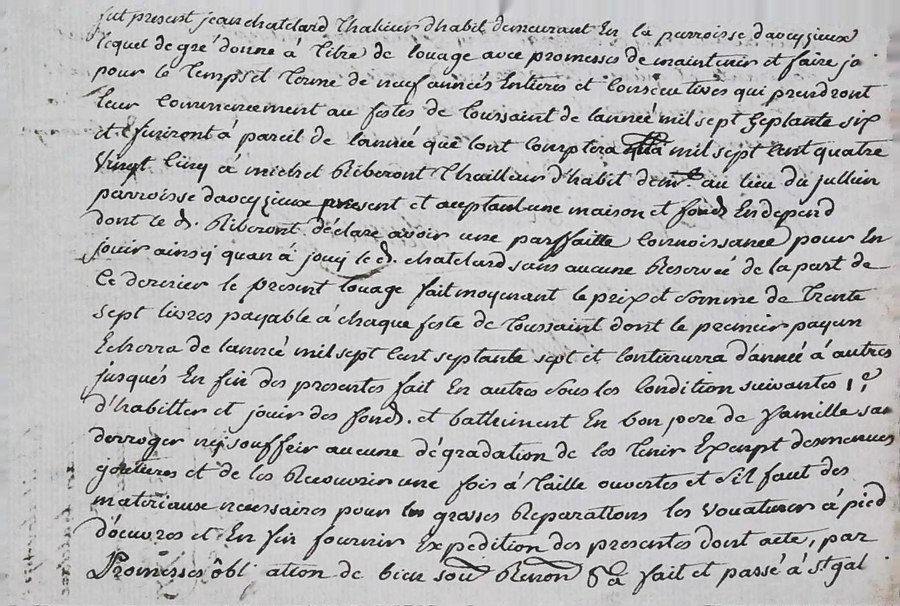 fut present jean chatelard thalieur dhabit demeurant En la parroisse daveyzieux
lequel de gré donne à titre de louage avec promesses de maintenir et faire jo
pour le temps et terme de neuf années Entieres et Consecutives qui prendront
leur Commencement au festes de toussaint de lannée mil sept septante six
et finiront à pareil de lannée que lont Comptera mil sept Cent quatre
vingt Cinq à michel Riberont thailleur d'habit dem.t au lieu du jullin
parroisse daveyzieux present et aceptant une maison et fonds En depend
dont le d. Riberont déclare avoir une parffaitte Connoissance pour En
jouir ainsy quan à jouy le d. chatelard sans aucune Reservée de la part de
Ce dernier le present louage fait moyenant le prix et somme de trente
sept livres payable à chaque feste de toussaint dont le premier payen
Echerra de lannée mil sept Cent septante sept et Continurra d'année à autres
jusqués En fin des presentes fait En autres sous les Condition suivantes 1.°
d'habitter et jouir des fonds. et battiment En bon pere de famille san
derroger ny souffrir aucune dégradation de les tenir Exempt des menues
goutures et de les Recouvrir une fois à taille ouvertes et s'il faut des
materiaux necessaires pour les grosses Reparattons les voaturer à pied
d'œuvres et En fin fournir Expedition des presentes dont acte, par
Promesses obligation de bien soud Renon &a fait et passé à st gal